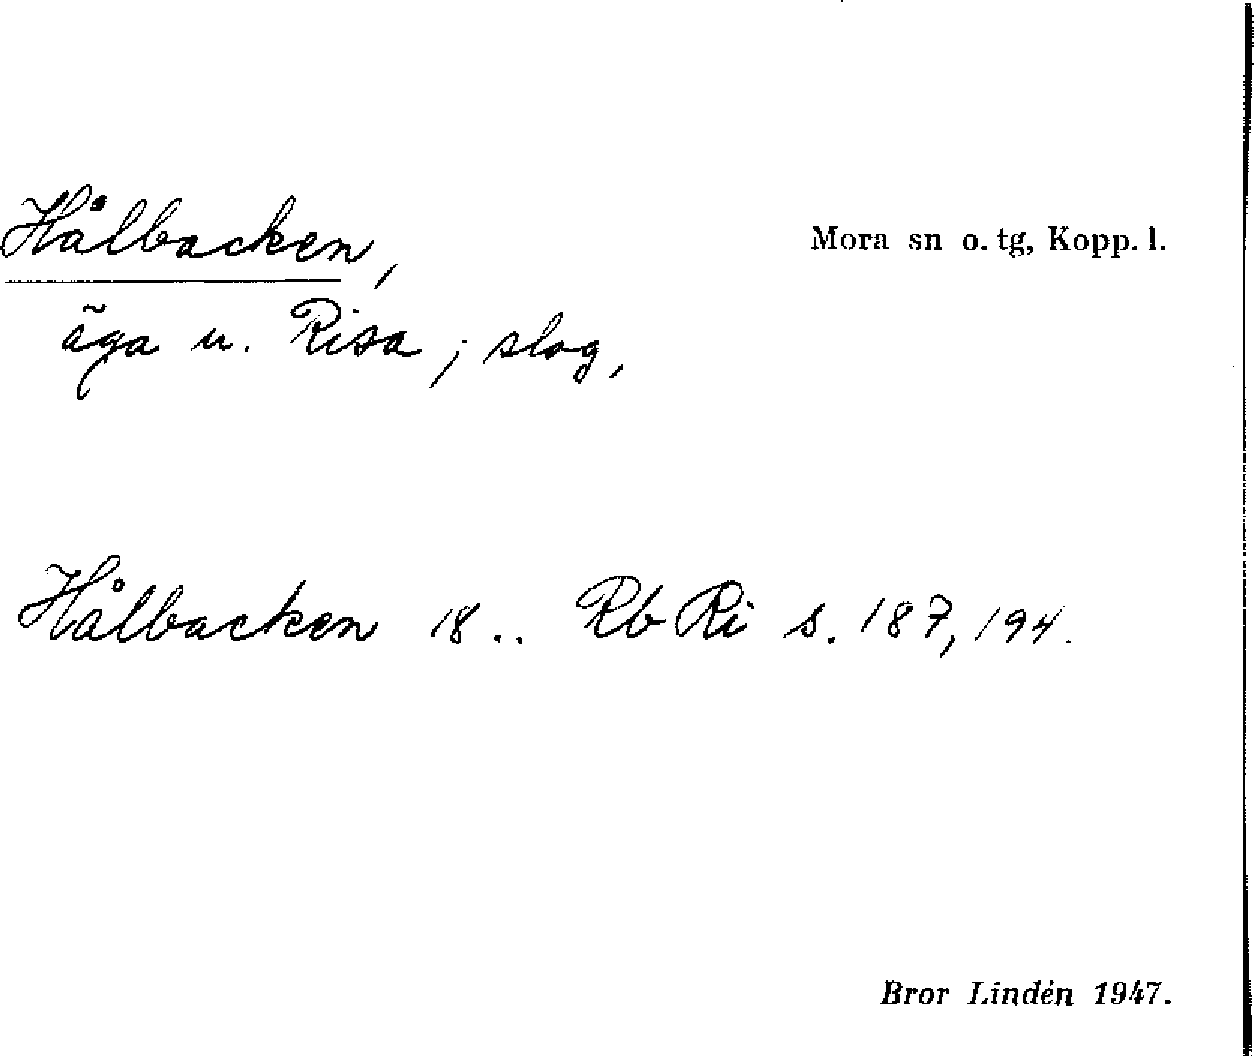 Hålbacken,
Mora sn o. tg, Kopp. l.
äga u. Risa; slog,
Hålbacken 18.. Rb Ri s. 187, 194.
Bror Lindén 1947.